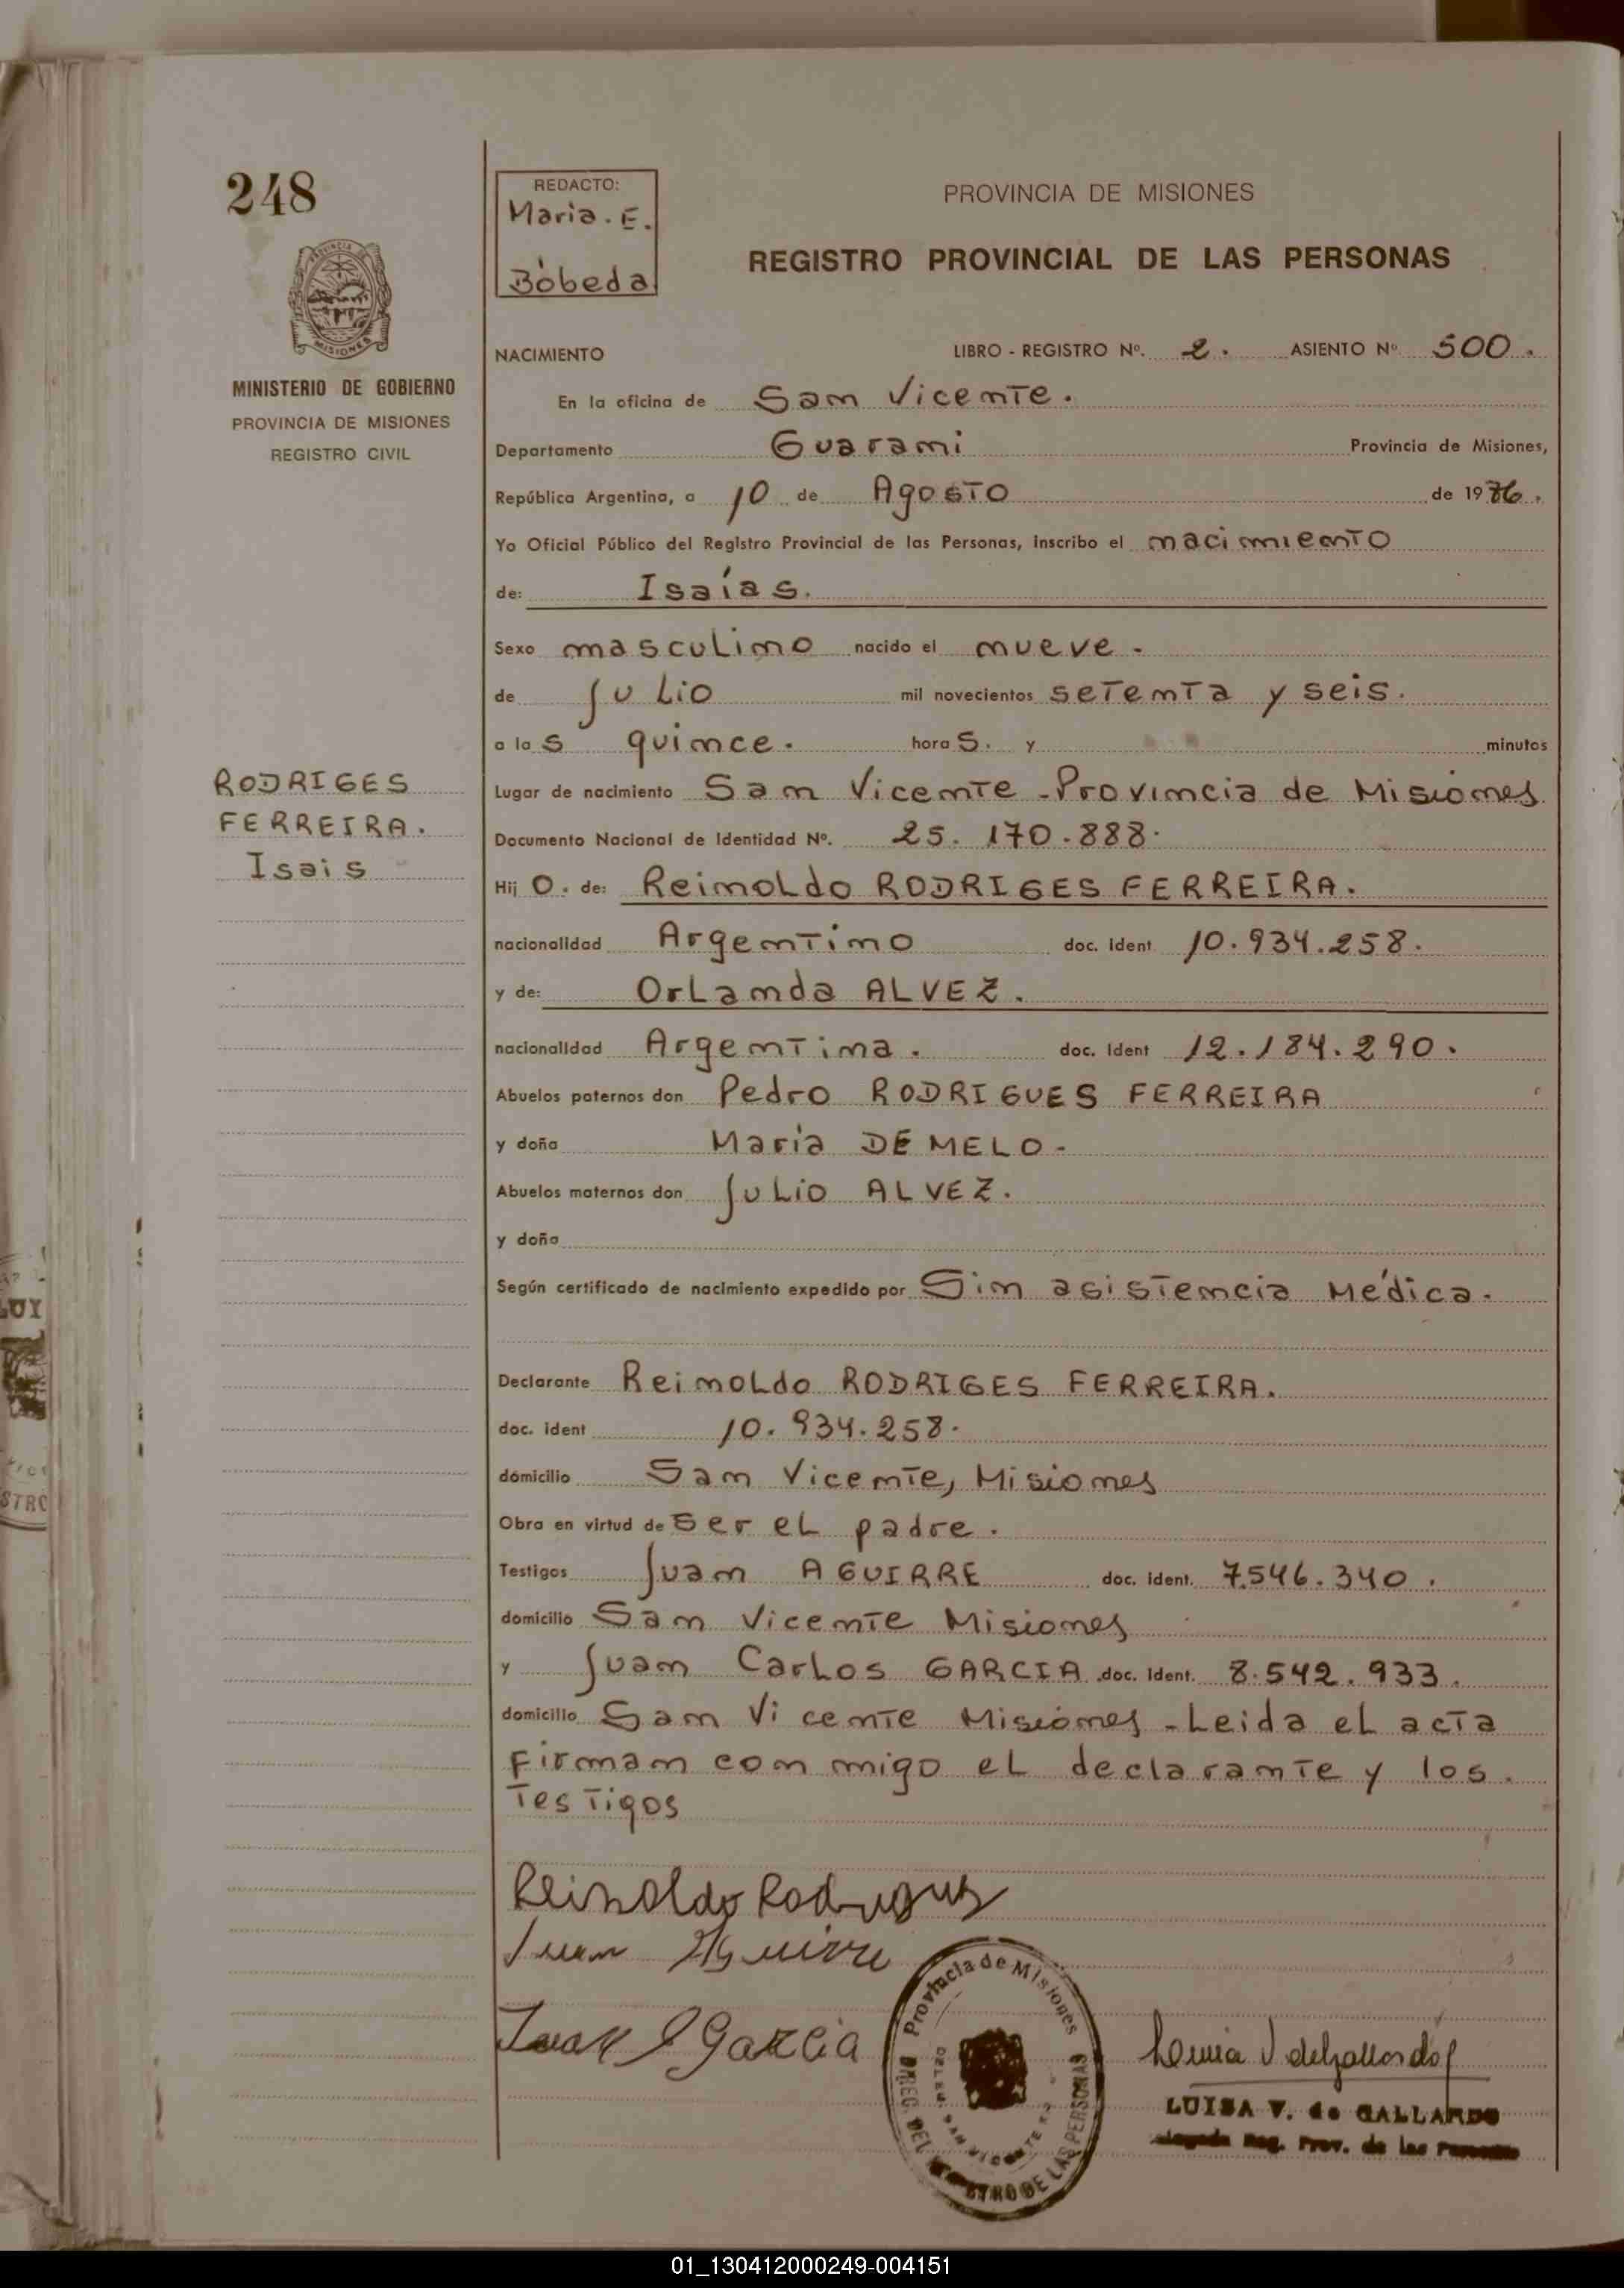 248
REDACTO:
Maria. E.
Bóbeda
PROVINCIA DE MISIONES
REGISTRO PROVINCIAL DE LAS PERSONAS
PROVINCIA
MISIONES
MINISTERIO DE GOBIERNO
PROVINCIA DE MISIONES
REGISTRO CIVIL
NACIMIENTO LIBRO - REGISTRO Nº. 2. ASIENTO Nº 500.
En la oficina de San Vicente.
Departamento Guarani Provincia de Misiones,
República Argentina, a 10 de Agosto de 1976.
Yo Oficial Público del Registro Provincial de las Personas, inscribo el nacimiento
de: Isaías.
Sexo masculino nacido el nueve.
de Julio mil novecientos setenta y seis.
a las quince. horas. y minutos
Lugar de nacimiento San Vicente - Provincia de Misiones
Documento Nacional de Identidad Nº. 25.170.888.
RODRIGES
FERREIRA.
Isais
Hijo. de: Reinoldo RODRIGES FERREIRA.
nacionalidad Argentino doc. Ident 10.934.258.
y de: Orlanda ALVEZ.
nacionalidad Argentina. doc. Ident 12.184.290.
Abuelos paternos don Pedro RODRIGUES FERREIRA
y doña Maria DE MELO -
Abuelos maternos don Julio ALVEZ.
y doña
Según certificado de nacimiento expedido por Sin asistencia Médica.
Declarante Reinoldo RODRIGES FERREIRA.
doc. ident 10.934.258.
domicilio San Vicente, Misiones
Obra en virtud de ser el padre.
Testigos Juan AGUIRRE doc. ident. 7.546.340.
domicilio San Vicente Misiones
y Juan Carlos GARCIA doc. Ident. 8.542.933.
domicilio San Vicente Misiones - Leida el acta
Firman con migo el declarante y los.
Testigos
Reinoldo Rodrigues
Juan Aguirre
Juan C Garcia
Provincia de Misiones
DIREC. DEL REGISTRO DE LAS PERSONAS
SAN VICENTE
LUISA V. de GALLARDO
Reg. Prov. de las Personas
01_130412000249-004151